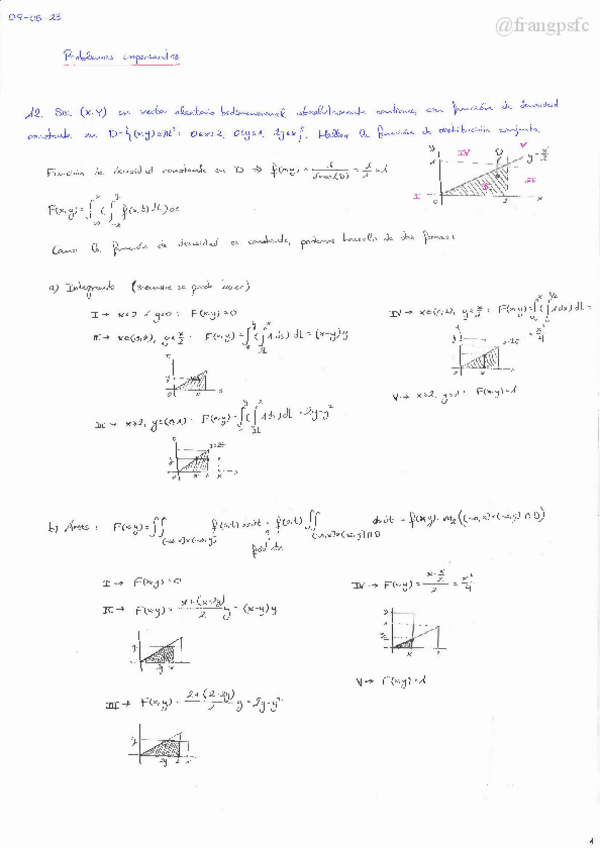 @frangpsfc
09-05-23
Problemas importantes
12. Sea (X,Y) un vector aleatorio bidimensional absolutamente continuo, con función de densidad
constante en D={(x,y)∈ℝ²: 0≤x≤2, 0≤y≤1, 2y≤x}. Hallar la función de distribución conjunta.
Función de densidad constante en D ⇒ f(x,y) = = 1/1 = 1
F(x,y) = ∫ ( ∫ f(s,t) dt ) ds
Como la función de densidad es constante, podemos hacerlo de dos formas:
a) Integrando (siempre se puede hacer)
I → x<0 ó y<0 : F(x,y) = 0
II → x∈(0,2), y< x/2 : F(x,y) = ∫ ( ∫ 1 ds ) dt = (x-y)y
III → x>2, y=(0,1) : F(x,y) = ∫ ( ∫ 1 ds ) dt = 2y-y²
IV → x∈(0,2), y≤ x/2 : F(x,y) = = x²/4
V → x>2, y>1 : F(x,y) = 1
b) Áreas : F(x,y) = ∫∫ f(s,t) dsdt = f(s,t) ∫∫ dsdt = f(x,y) · ((-∞,x]×(-∞,y] ∩ D)
I → F(x,y) = 0
II → F(x,y) = x+(x-2y)/2 y = (x-y)y
III → F(x,y) = 2+(2-2y)/2 y = 2y-y²
IV → F(x,y) = x·x/2 / 2 = x²/4
V → F(x,y) = 1
1